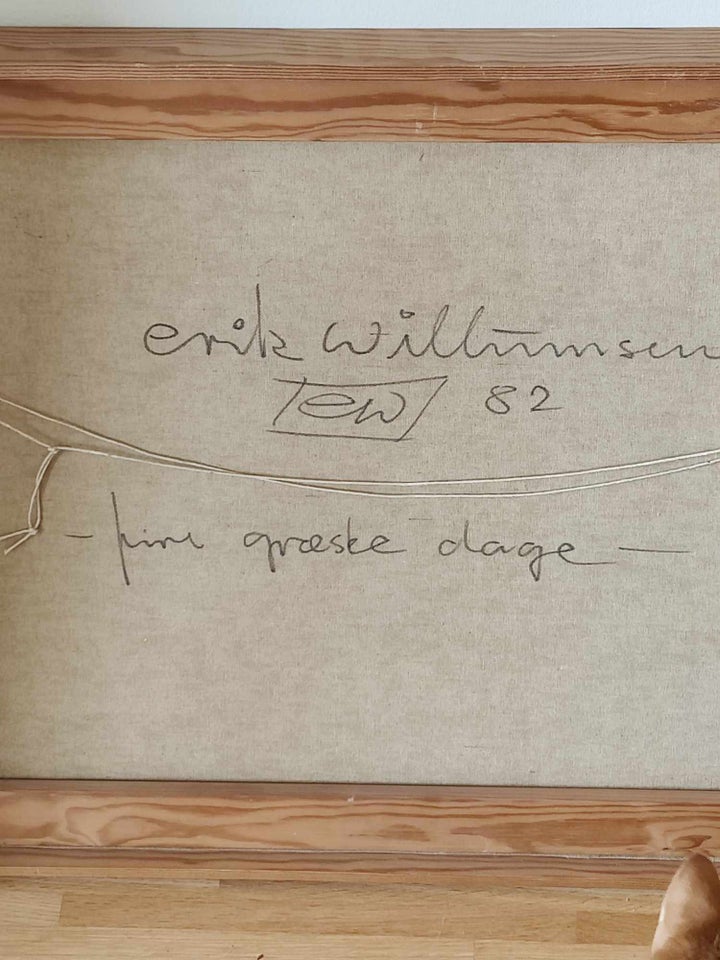 erik willumsen
ew 82
- græske dage -